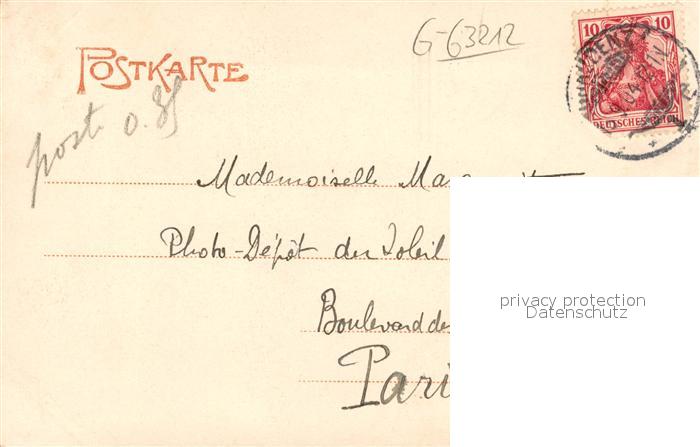 G-63212
10 10
DEUTSCHES REICH
POSTKARTE
Mademoiselle
Photo-Dépôt du Soleil
Boulevard des
privacy protection
Datenschutz